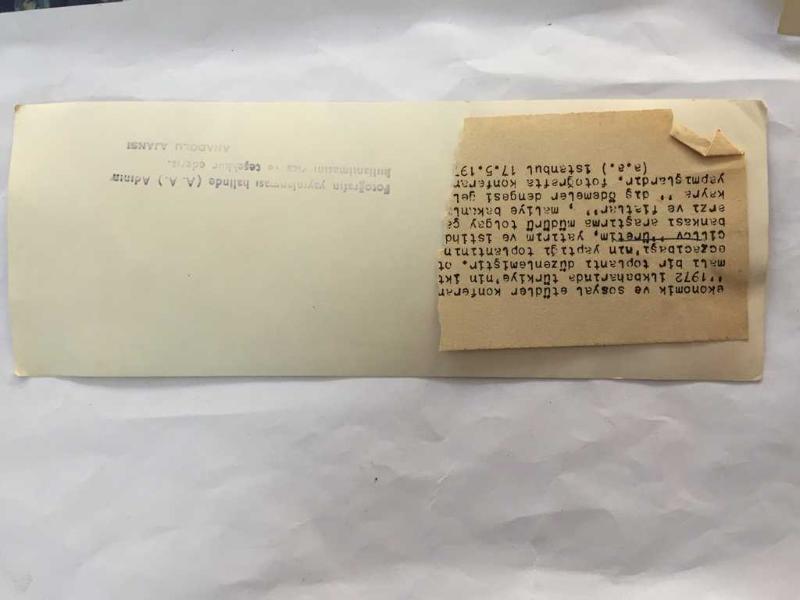 ekonomik ve sosyal etüdler konferan
''1972 ilkbaharında türkiye'nin ikt
mali bir toplantı düzenlemiştir. ot
eczacıbaşı'nin yaptığı toplantının
çillov ''üretim, yatırım ve istihd
bankası araştırma müdürü tolgay ça
arzı ve fiatlar'' , maliye bakanl
kayra '' dış ödemeler dengesi gel
yapmışlardır. fotoğrafta konferan
(a.a.) istanbul 17.5.197
Fotoğrafın yayınlanması halinde (A. A.) Adının
kullanılmasını rica ve teşekkür ederiz.
ANADOLU AJANSI